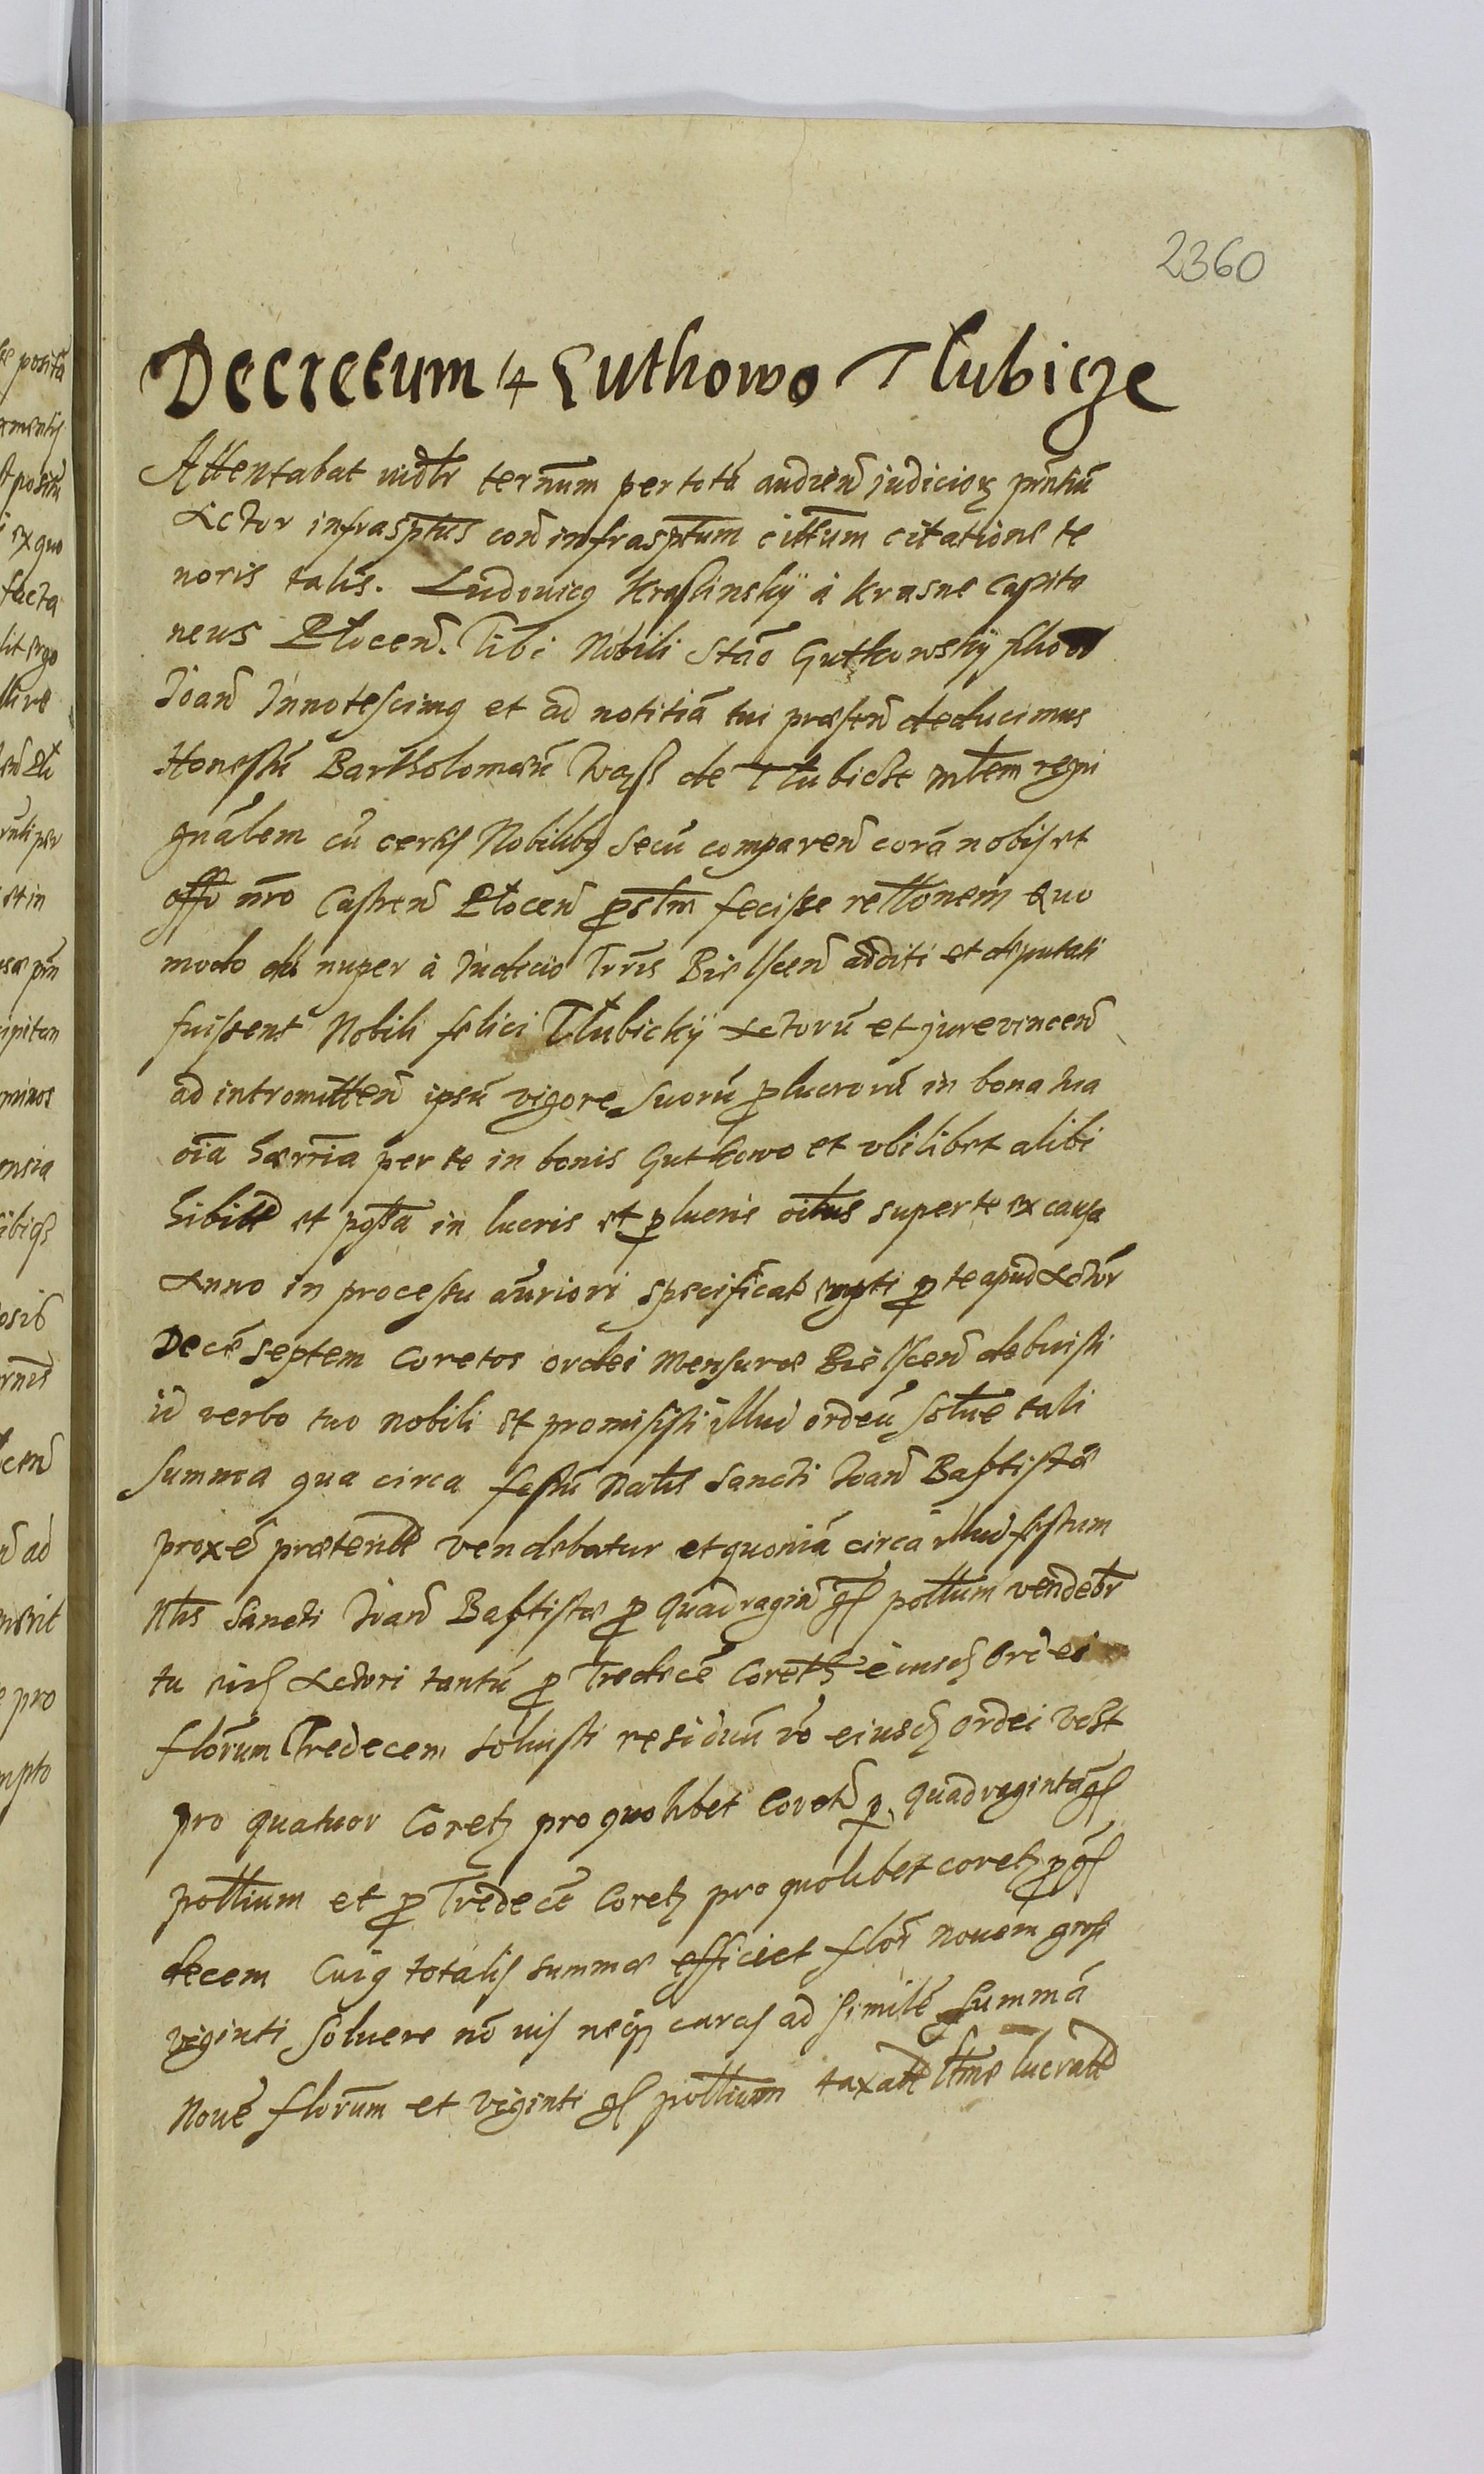 2360
Decretum 4 Luthowo Tlubicze
Attentabat vidlr ternum per totã audien judiciorz pñtiũ
Actor infrasptus con infrasptum cittum citatione te
noris talis. Ludovicus Krassinsky à Krasne Capita
neus Plocen. Tibi Nobili Stão Gutkowsky filio
Joan Innotescimus et ad notitiã tui præsen deducimus
Honestũ Bartholomæũ de Tlubicze mlem regni
gnãlem cũ certis Nobilibus secũ comparen corã nobis et
offo nro Castren Plocen fecisse relltonem Quo
modo nuper à Judicio Trris Bielscen additi et deputati
fuissent Nobili felici Tlubicky Actorũ et jurevincen
ad intromitten ipsũ vigore suorũ plucrorũ in bona tua
oia hærria per te in bonis Gutkowo et ubilibet alibi
et in lucris et plucris super te ex causa
Anno in processu anriori specificat empti p te apud Actor
Decẽ septem Coretos ordei Mensuræ Bielscen debuisti
id verbo tuo nobili et promisisti illud ordeũ solue tali
summa qua circa festũ Natis Sancti Joan Baptistæ
proxẽ præterite vendebatur et quoniã circa illud festum
Ntis Sancti Joan Baptistæ p Quadragin gs polltum vendebtr
tu Actori tantũ p Tredecẽ Coretz eiusd Ordei
florum Tredecem soluisti residuũ vo eiusd Ordei vest
pro quatuor Coretz pro quolibet Coret p quadraginta gs
polltium et p Tredecẽ Coretz pro quolibet coretz p gs
decem Cuius totalis summæ efficiet flor novem gross
viginti soluere nõ vis neqz curas ad similẽ summã
Nouẽ florum et viginti gs polltium taxate ltme lucrate